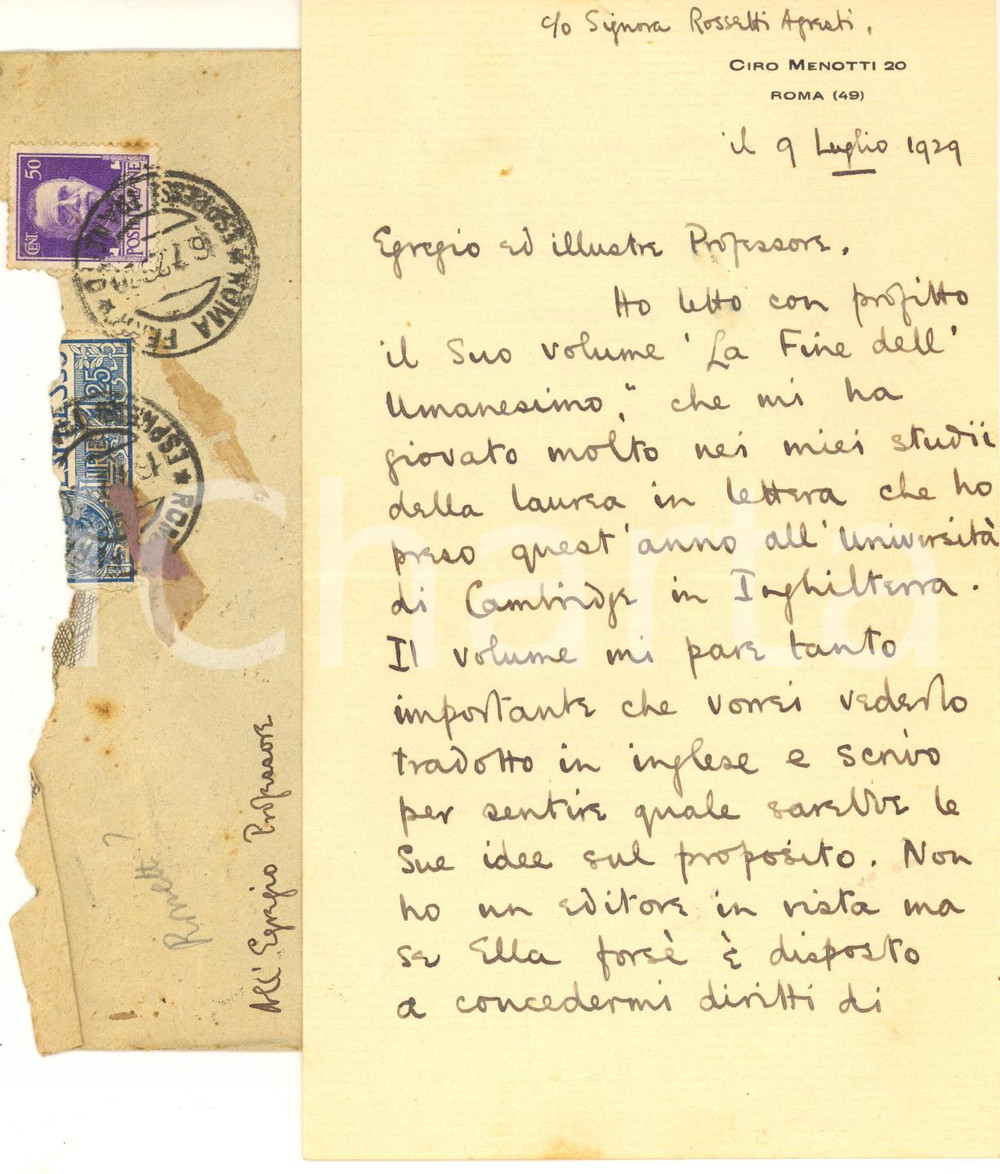 c/o Signora Rossetti Agresti,
CIRO MENOTTI 20
ROMA (49)
il 9 Luglio 1929
Egregio ed illustre Professore,
Ho letto con profitto
il Suo volume 'La Fine dell'
Umanesimo," che mi ha
giovato molto nei miei studii
della laurea in lettera che ho
preso quest'anno all'Università
di Cambridge in Inghilterra.
Il volume mi pare tanto
importante che vorrei vederlo
tradotto in inglese e scrivo
per sentire quale sarebbe le
Sue idee sul proposito. Non
ho un editore in vista ma
se Ella forsè è disposto
a concedermi diritti di
All' Egregio Professore
50
CENT
POSTE ITALIANE
ROMA
ESPRESSI
1,25
LIRE
ESPRE
iCharta